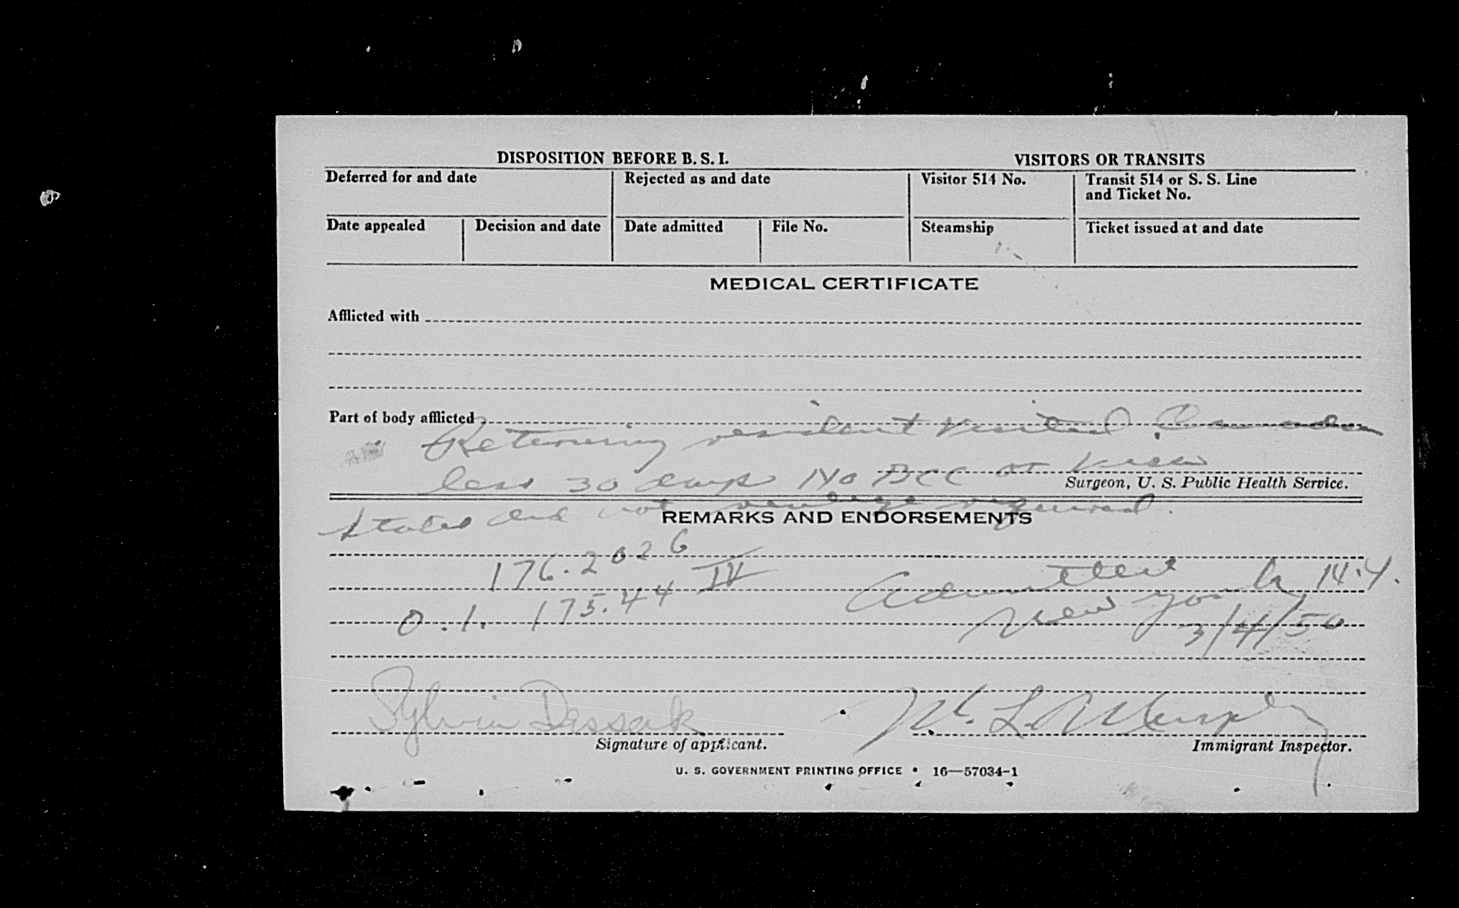 DISPOSITION BEFORE B. S. I.
VISITORS OR TRANSITS
Deferred for and date
Rejected as and date
Visitor 514 No.
Transit 514 or S. S. Line
and Ticket No.
Date appealed
Decision and date
Date admitted
File No.
Steamship
Ticket issued at and date
MEDICAL CERTIFICATE
Afflicted with
Part of body afflicted
Returning resident visited Canada
less 30 days No BCC or visa
Surgeon, U. S. Public Health Service.
States did not required.
REMARKS AND ENDORSEMENTS
176.2026
0.1. 175.44 IV
Admitted N.Y.
New York
3/4/50
Sylvin Dessak
W. L. Murphy
Signature of applicant.
Immigrant Inspector.
U. S. GOVERNMENT PRINTING OFFICE 16—57034-1